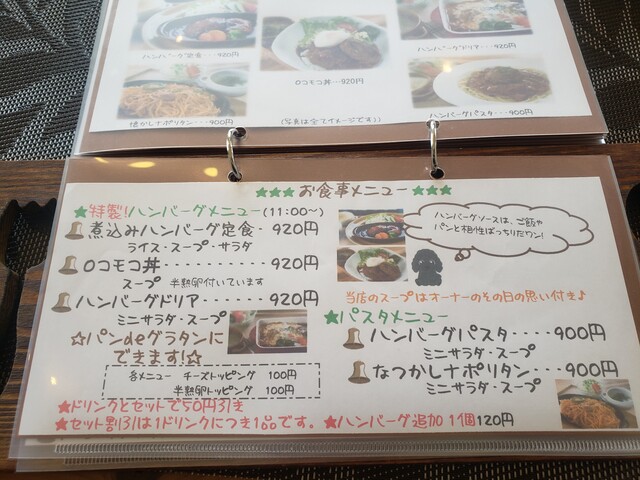 ハンバーグ定食・・・920円
ロコモコ丼・・・920円
ハンバーグドリア・・・920円
懐かしナポリタン・・・900円
(写真は全てイメージです!)
ハンバーグパスタ・・・900円
★★★お食事メニュー★★★
★特製!ハンバーグメニュー(11:00~)
煮込みハンバーグ定食・920円
ライス・スープ・サラダ
ロコモコ丼・・・・・・・・・・920円
スープ 半熟卵付いています
ハンバーグドリア・・・・・・・・920円
ミニサラダ・スープ
☆パンdeグラタンに
できます!☆
各メニュー チーズトッピング 100円
半熟卵トッピング 100円
★ドリンクとセットで50円引き
★セット割引は1ドリンクにつき1品です。
ハンバーグソースは、ご飯や
パンと相性ばっちりだワン!
当店のスープはオーナーのその日の思い付き♪
★パスタメニュー
ハンバーグパスタ・・・・900円
ミニサラダ・スープ
なつかしナポリタン・・・900円
ミニサラダ・スープ
★ハンバーグ追加 1個120円